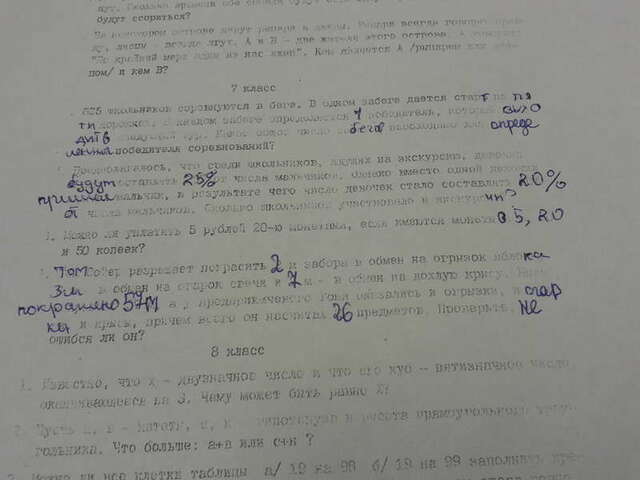 будут ссориться?
На некотором острове живут рыцари и лжецы. Рыцари всегда говорят
ду, лжецы - всегда лгут. А и В - две жителя этого острова. А
"По крайней мере один из нас лжец". Кем является А /рыцарем или
цом/ и кем В?
7 класс
школьников соревнуются в беге. В одном забеге дается старт на пя
ти дорожках. В каждом забеге определяется 1 победитель, который выхо
дит в следующий тур. Какое число забегов необходимо для опреде
ления победителя соревнований?
Предполагалось, что среди школьников, едущих на экскурсию, девочки
будут составлять 25% числа мальчиков. Однако вместо одной девочки
пришел мальчик, в результате чего число девочек стало составлять 20%
от числа мальчиков. Сколько школьников участвовало в экскурсии?
Можно ли уплатить 5 рублей 20-ю монетами, если имеются монеты в 5, 20
и 50 копеек?
Том Сойер разрешает покрасить 2 м забора в обмен на огрызок яблока
3м в обмен на огарок свечи и 7 м - в обмен на дохлую крысу.
покрашено 57м а у предприимчивого Тома оказались и огрызки, и огар
ки и крысы, причем всего он насчитал 26 предметов. Проверьте, не
ошибся ли он?
8 класс
1. Известно, что х - двузначное число и что его куб - пятизначное число,
оканчивающееся на 3. Чему может быть равно Х?
2. Пусть а, в - катеты, с, н - гипотенуза и высота прямоугольного треу
гольника. Что больше: а+в или с+н ?
Можно ли все клетки таблицы а/ 19 на 98 б/ 19 на 99 заполнить